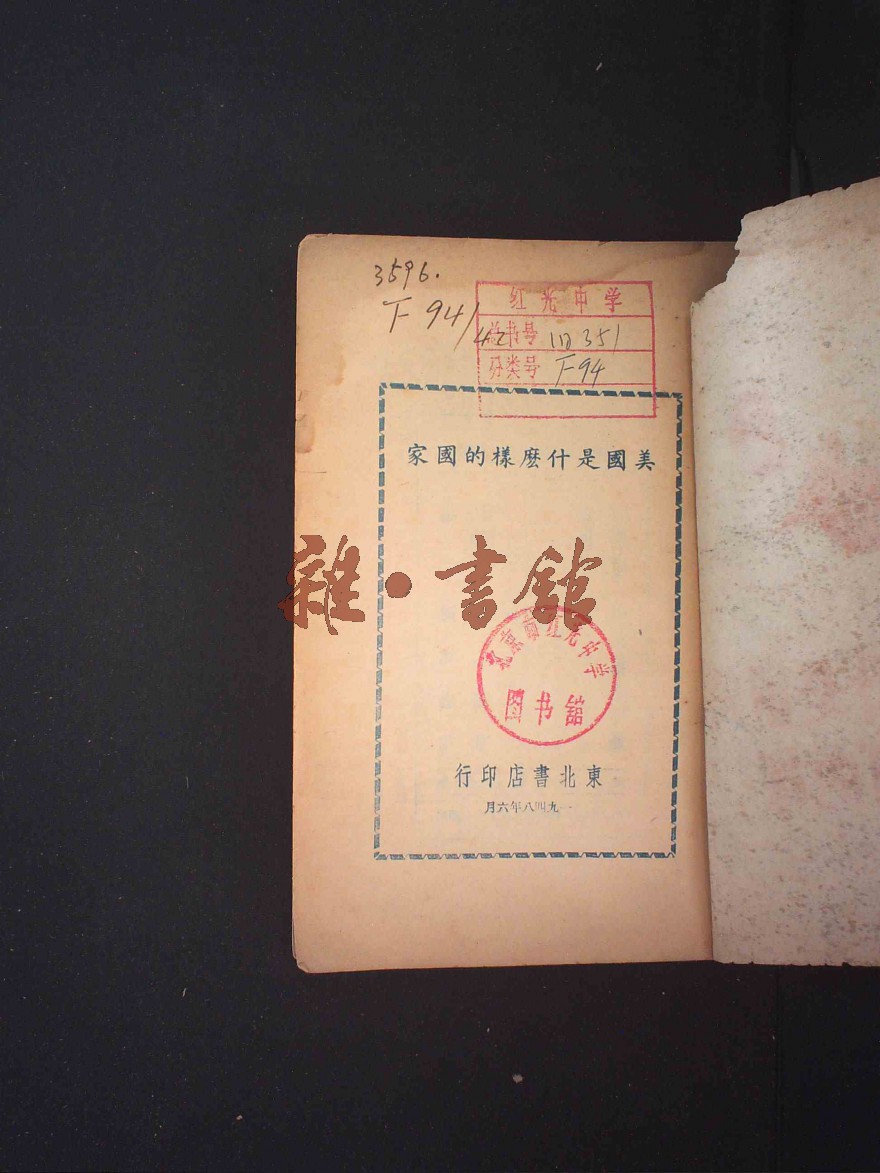 3596.
F 94/42
红光中学
总书号 10351
分类号 F94
美國是什麽樣的國家
雜·書館
北京市红光中学
图书馆
東北書店印行
一九四八年六月